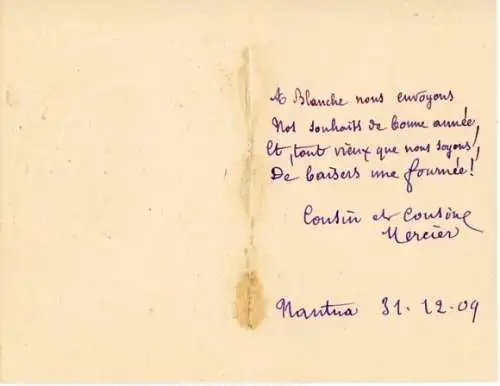 A Blanche nous envoyons,
Nos souhaits de bonne année,
Et, tout vieux que nous soyons,
De baisers une fournée!
Cousin et Cousine
Mercier
Nantua 31-12-09